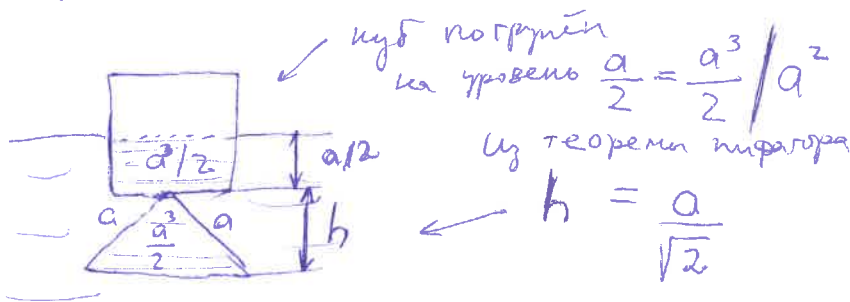 куб погружён
на уровень a/2 = a³/2 / a²
из теоремы пифагора
h = a/√2
a³/2
a/2
a
a
a³/2
h